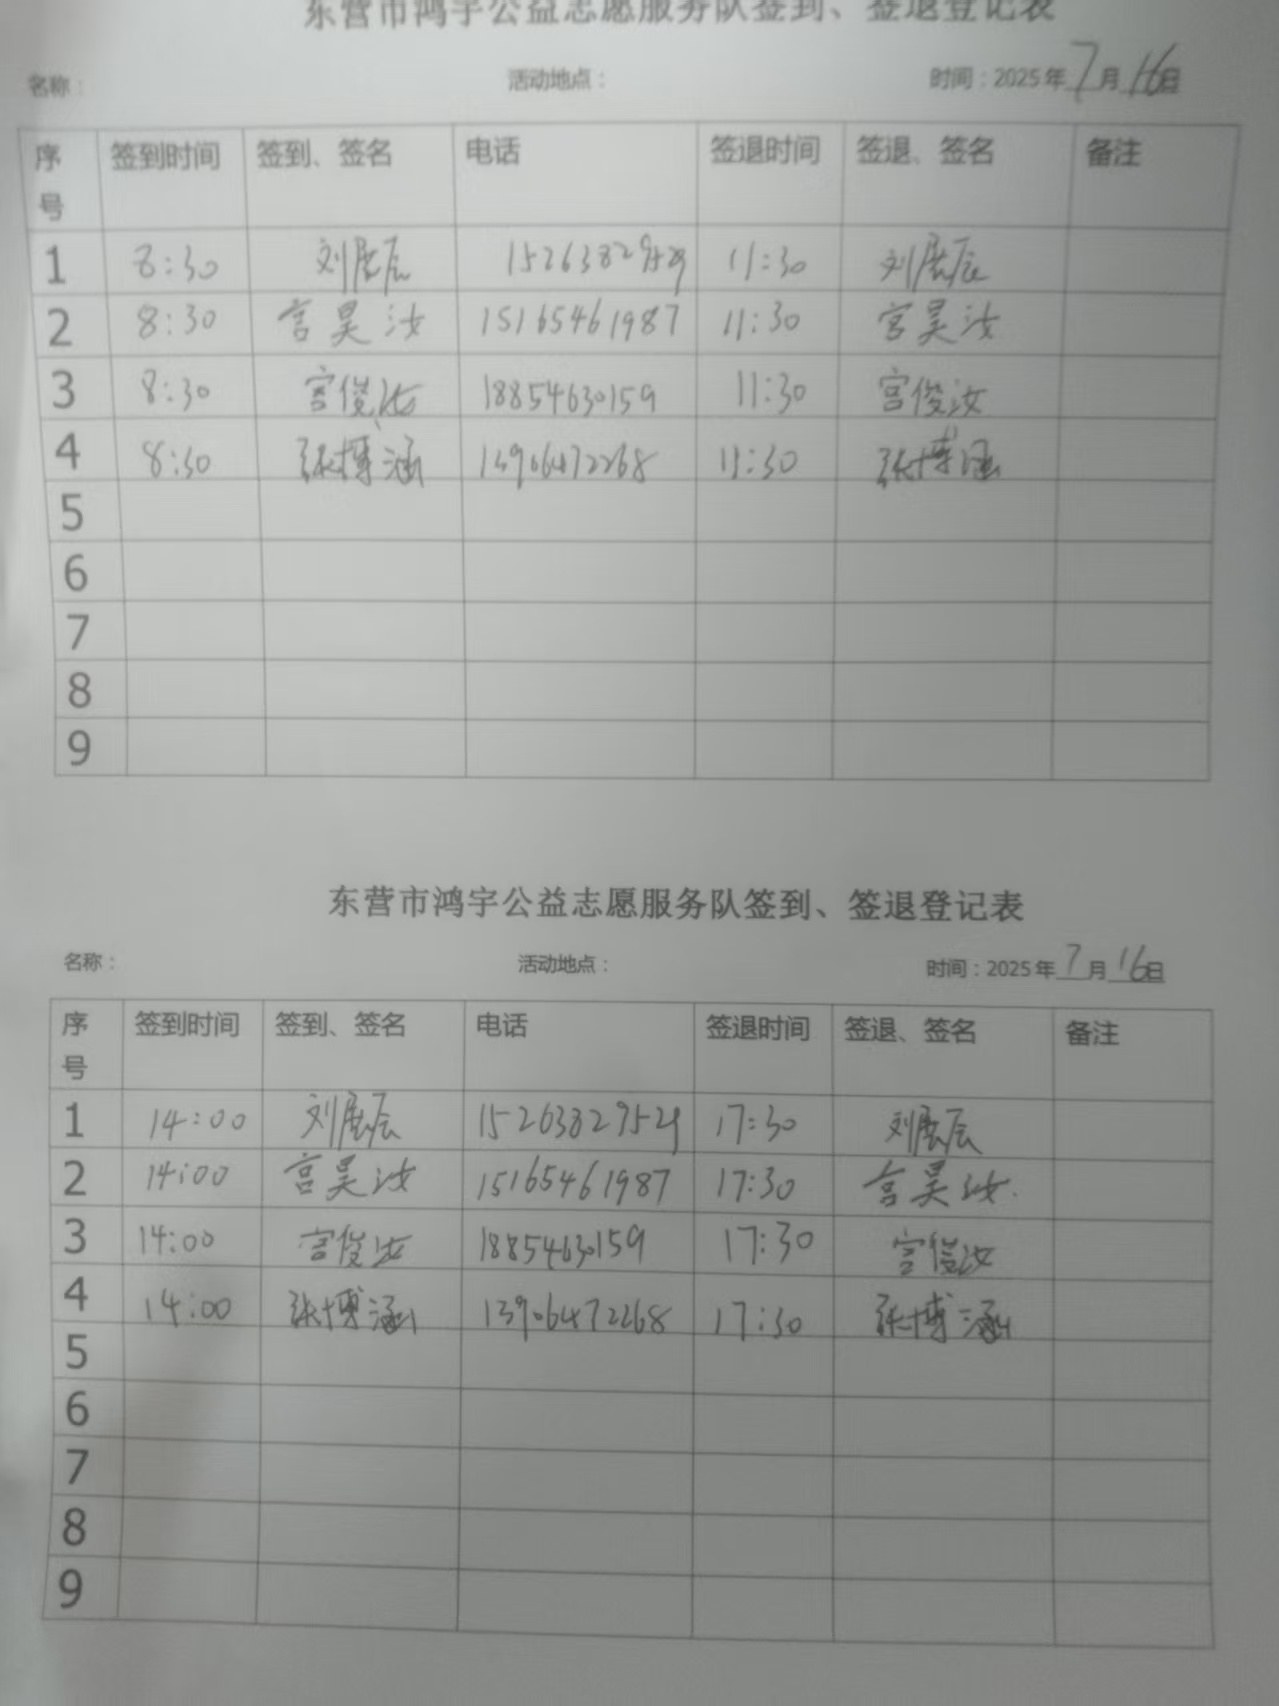 东营市鸿宇公益志愿服务队签到、签退登记表
名称： 活动地点： 时间：2025年7月16日
序号 签到时间 签到、签名 电话 签退时间 签退、签名 备注
1 8:30 刘展辰 15263829529 11:30 刘展辰
2 8:30 宫昊汝 15165461987 11:30 宫昊汝
3 8:30 宫俊汝 18854630159 11:30 宫俊汝
4 8:30 张博涵 13906472268 11:30 张博涵
5
6
7
8
9
东营市鸿宇公益志愿服务队签到、签退登记表
名称： 活动地点： 时间：2025年7月16日
序号 签到时间 签到、签名 电话 签退时间 签退、签名 备注
1 14:00 刘展辰 15263829529 17:30 刘展辰
2 14:00 宫昊汝 15165461987 17:30 宫昊汝
3 14:00 宫俊汝 18854630159 17:30 宫俊汝
4 14:00 张博涵 13906472268 17:30 张博涵
5
6
7
8
9